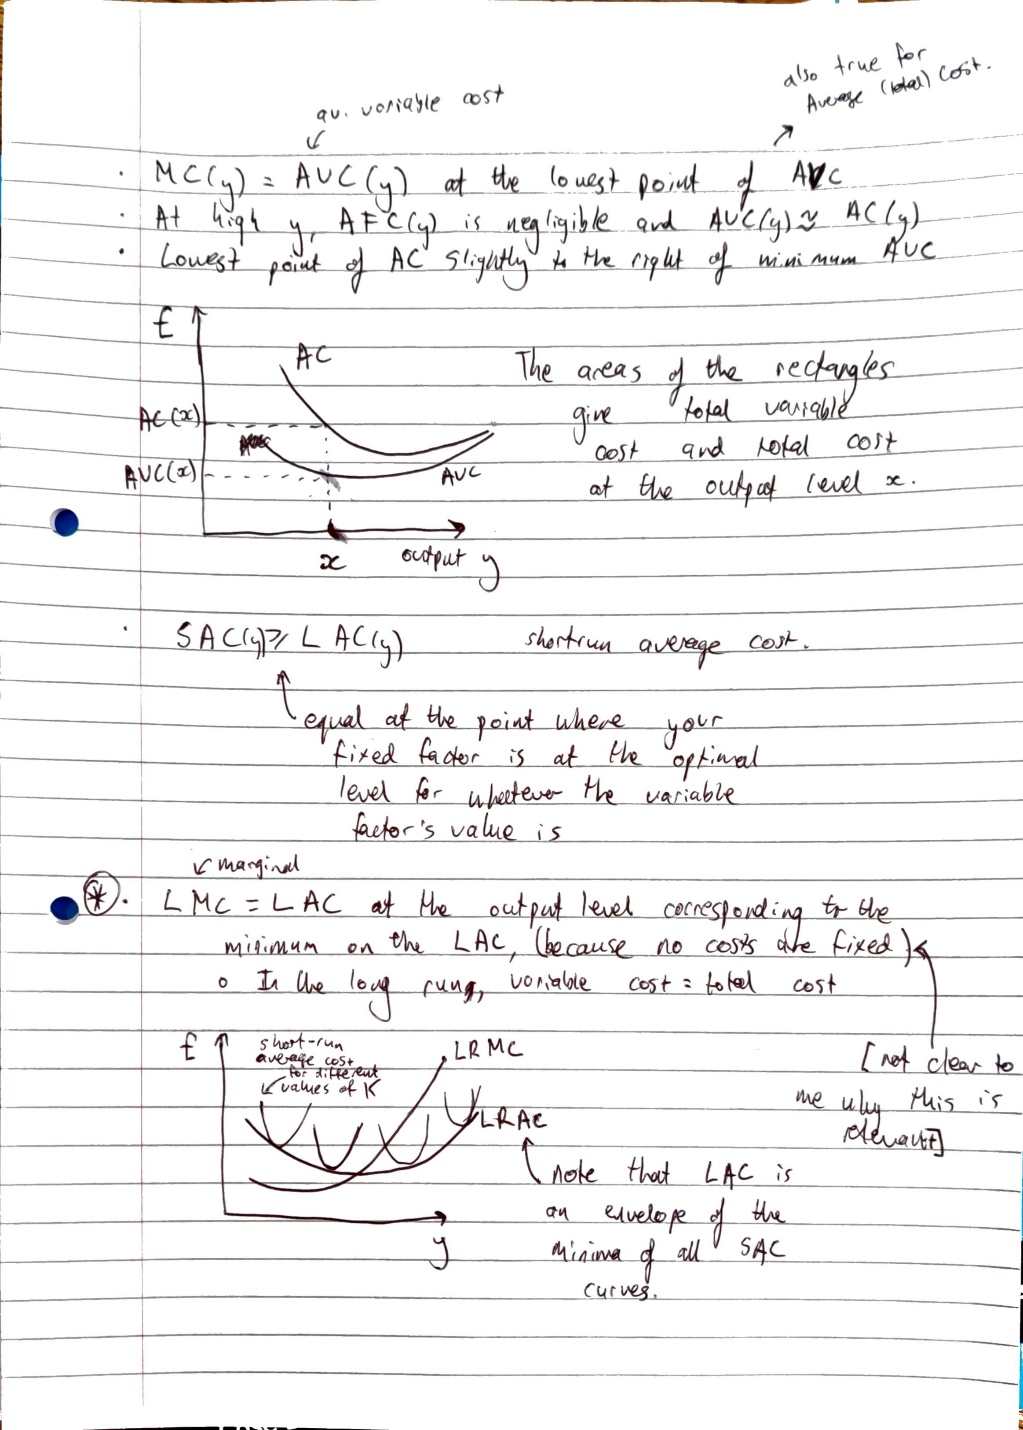 also true for
Average (total) cost.
av. variable cost
· MC(y) = AVC(y) at the lowest point of AVC
· At high y, AFC(y) is negligible and AVC(y) ≈ AC(y)
· Lowest point of AC slightly to the right of minimum AVC
£
AC
AC(x)
AVC(x)
AVC
x
output y
The areas of the rectangles
give total variable
cost and total cost
at the output level x.
· SAC(y) ≥ LAC(y) shortrun average cost.
equal at the point where your
fixed factor is at the optimal
level for whatever the variable
factor's value is
marginal
(*). LMC = LAC at the output level corresponding to the
minimum on the LAC, (because no costs are fixed)
o In the long run, variable cost = total cost
[not clear to
me why this is
relevant]
£
short-run
average cost
for different
values of K
LRMC
LRAC
y
note that LAC is
an envelope of the
minima of all SAC
curves.